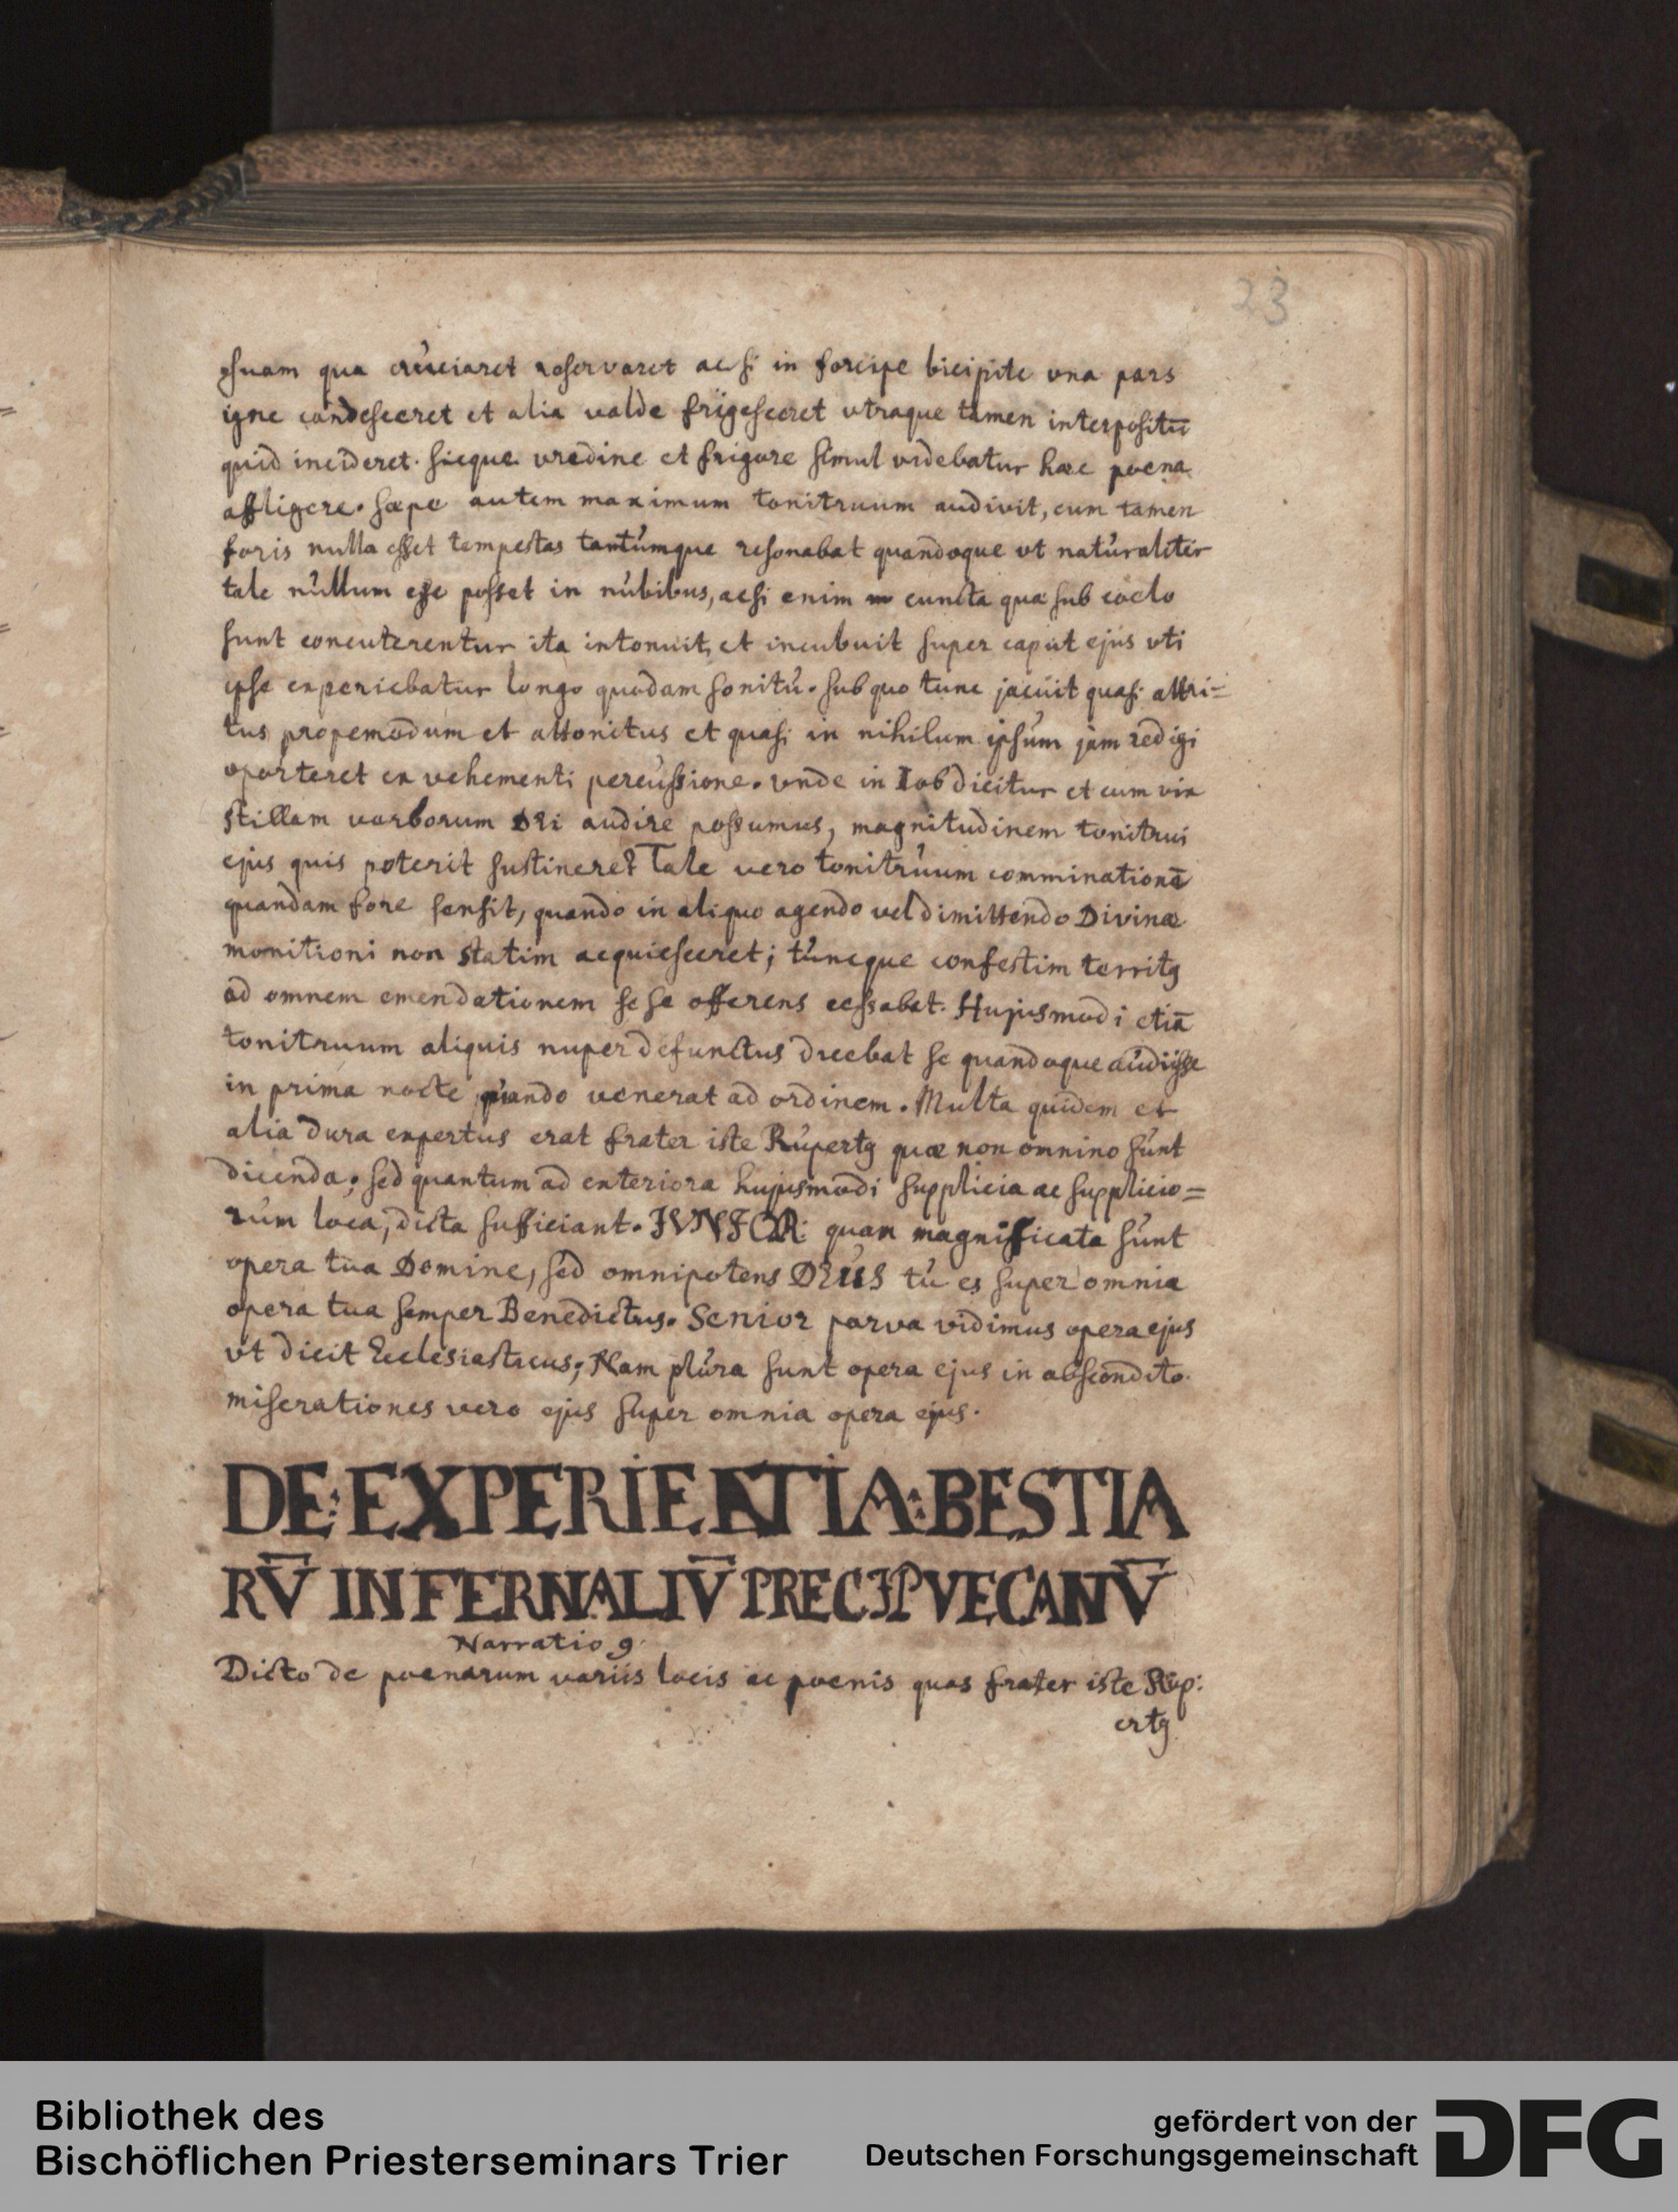 23
suam qua crúciaret reservaret acsi in forcipe bicipite una pars
igne candesceret et alia valde frigesceret vtraque tamen interpositū
quid incideret. sicque vredine et frigore simul videbatur hæc poena
affligere. sæpe autem maximum tonitruum audivit, cum tamen
foris nulla esset tempestas tantúmque resonabat quandoque vt natúraliter
tale núllum esse posset in núbibus, acsi enim cuncta quæ sub coelo
sunt concuterentur ita intonuit, et incubuit super capút ejus vti
ipse experiebatur longo quodam sonitú. sub quo túnc jacúit quasi attri=
tus propemodum et attonitus et quasi in nihilum ipsúm jam redigi
oporteret ex vehementi percússione. vnde in Iob dicitur et cum vix
stillam verborum DEi audire possumus, magnitudinem tonitrui
ejus quis poterit sustinere? Tale vero tonitrúum comminationē
quandam fore sensit, quando in aliquo agendo vel dimittendo Divinæ
monitioni non statim acquiesceret; túncque confestim territꝰ
ad omnem emendationem sese offerens cessabat. Hujusmodi etiā
tonitruum aliquis nuper defunctus dicebat se quandoque aúdisse
in prima nocte quando venerat ad ordinem. Multa quidem et
alia dura expertus erat frater iste Rúpertꝰ quæ non omnino súnt
dicenda; sed quantum ad exteriora hujusmodi supplicia ac supplicio=
rúm loca, dicta sufficiant. IVNIOR: quam magnificata súnt
opera tua Domine, sed omnipotens DEUS tú es super omnia
opera tua semper Benedictus. Senior parva vidimus opera ejus
vt dicit Ecclesiasticus; Nam plúra sunt opera ejus in abscondito.
miserationes vero ejus super omnia opera ejus.
DE: EXPERIENTIA: BESTIA
RV̄ INFERNALIV̄ PRECIPVE CANV̄
Narratio 9.
Dicto de poenarum variis locis ac poenis quas frater iste Rúp:
ertꝰ
Bibliothek des
Bischöflichen Priesterseminars Trier
gefördert von der
Deutschen Forschungsgemeinschaft
DFG